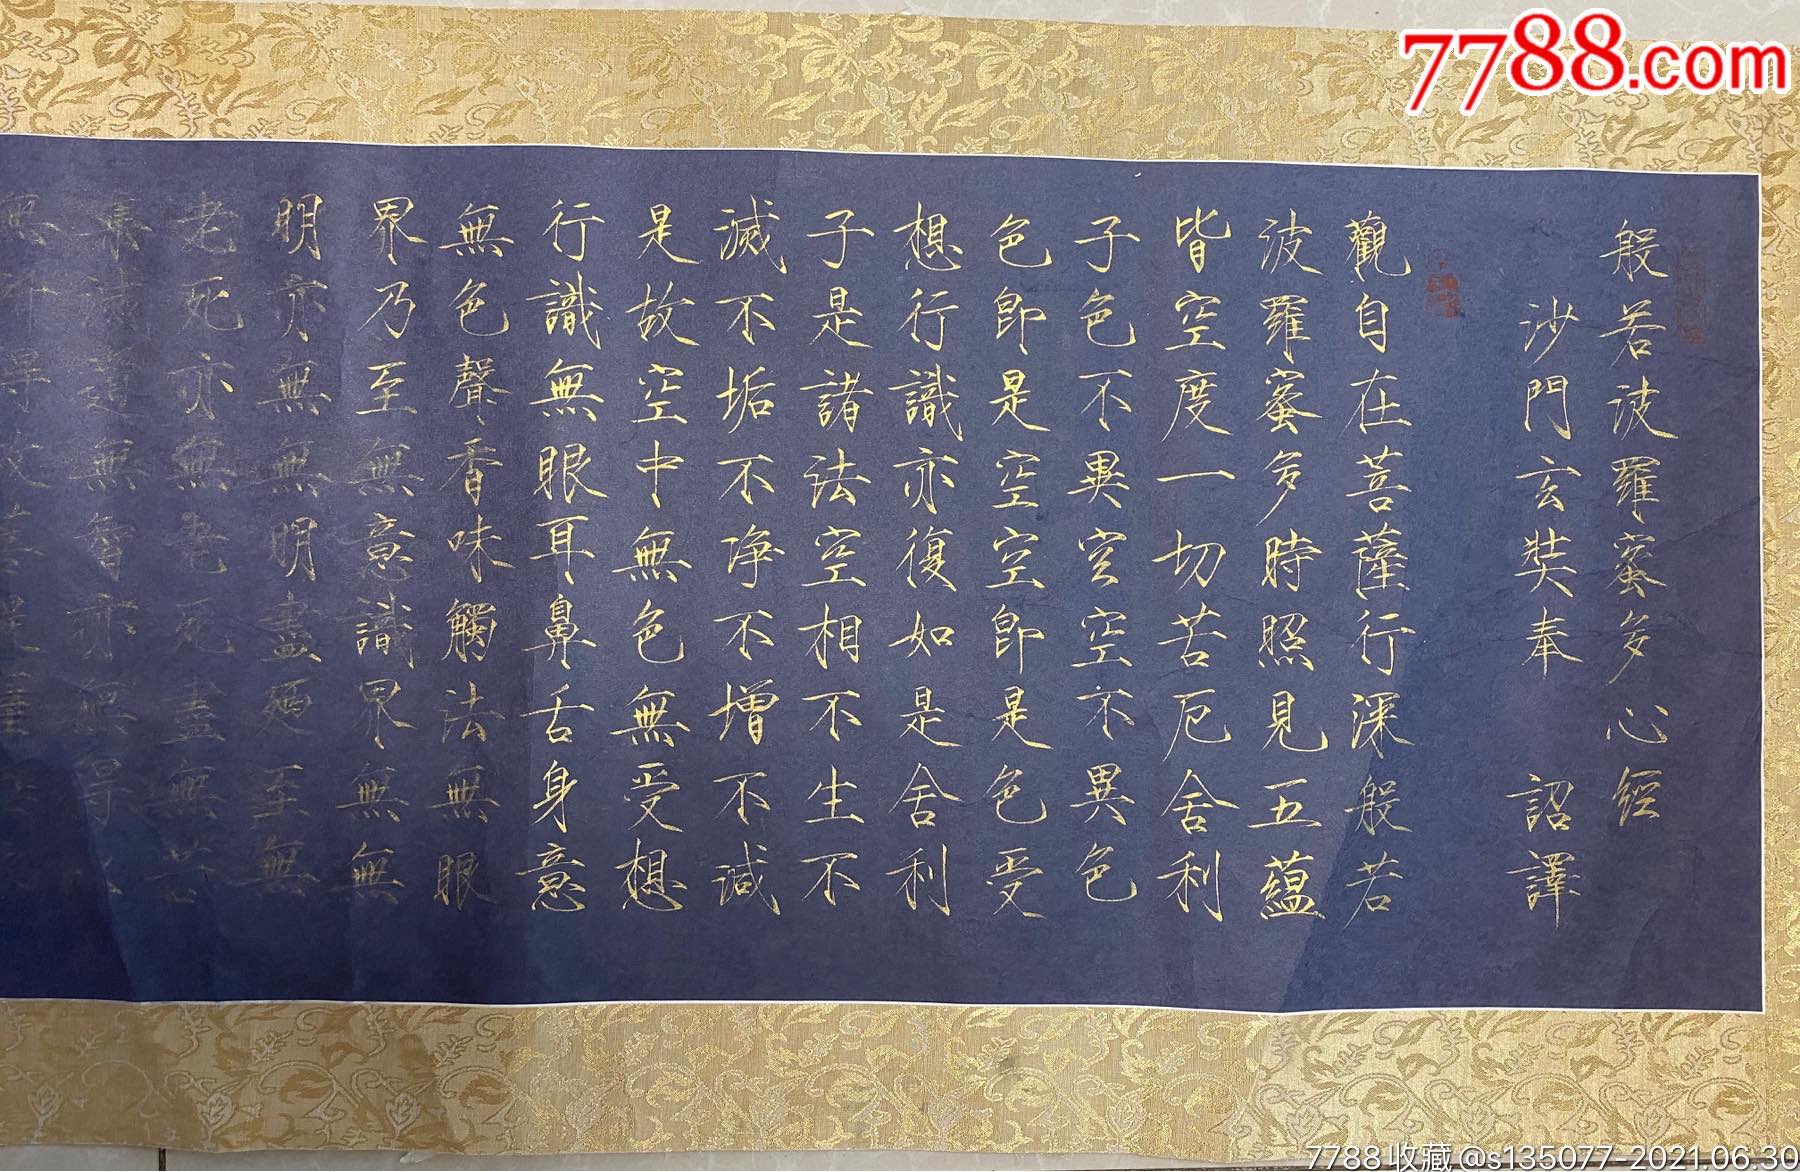 7788.com
般若波羅蜜多心經
沙門玄奘奉 詔譯
觀自在菩薩行深般若
波羅蜜多時照見五蘊
皆空度一切苦厄舍利
子色不異空空不異色
色即是空空即是色受
想行識亦復如是舍利
子是諸法空相不生不
滅不垢不净不增不減
是故空中無色無受想
行識無眼耳鼻舌身意
無色聲香味觸法無眼
界乃至無意識界無無
明亦無無明盡廼至無
老死亦無老死盡無苦
集道無智亦無得
得故菩提薩
7788收藏@s135077-2021.06.30